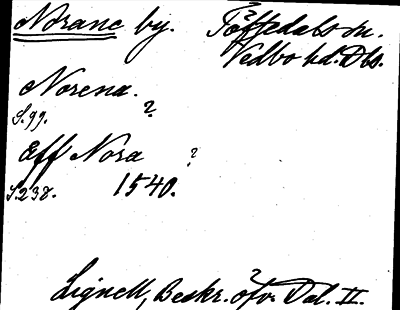 Norane by. Töftedals sn.
Vedbo hd. Dls.
Norena.
S. 99. ?
Eff Nora ?
S. 238. 1540.
Lignell, Beskr. öfv. Dal. II.